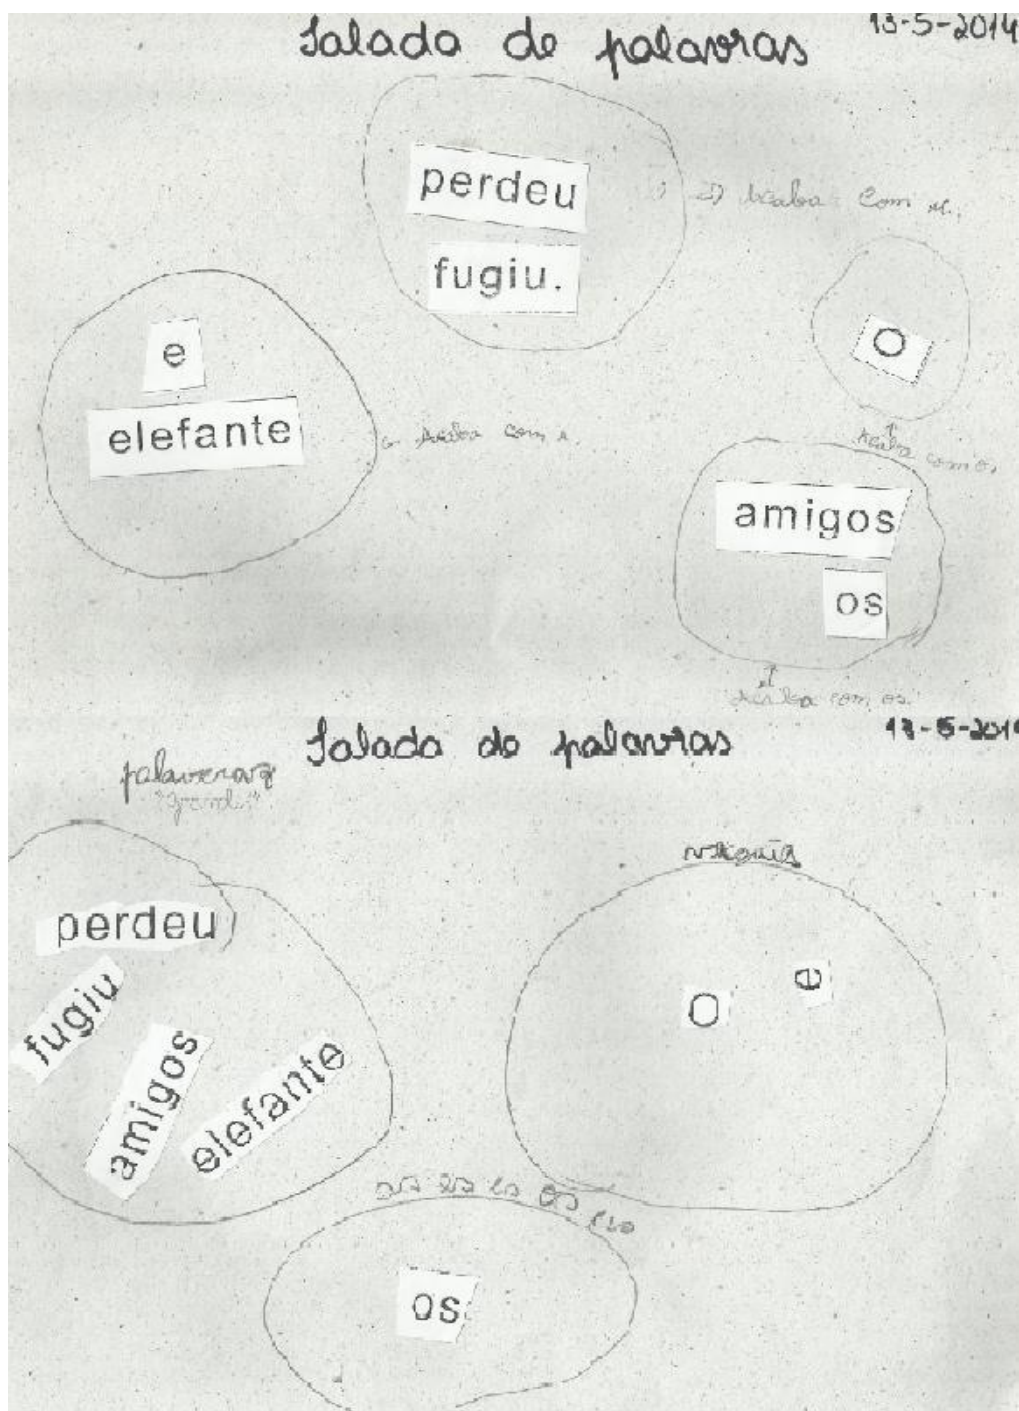 Salada de palavras 13-5-2014
perdeu
fugiu.
acaba com u.
e
elefante
acaba com e.
O
acaba com o.
amigos
os
acaba com os.
Salada de palavras 13-5-2014
"grandes"
perdeu
fugiu
amigos
elefante
O
e
as es is os us
os